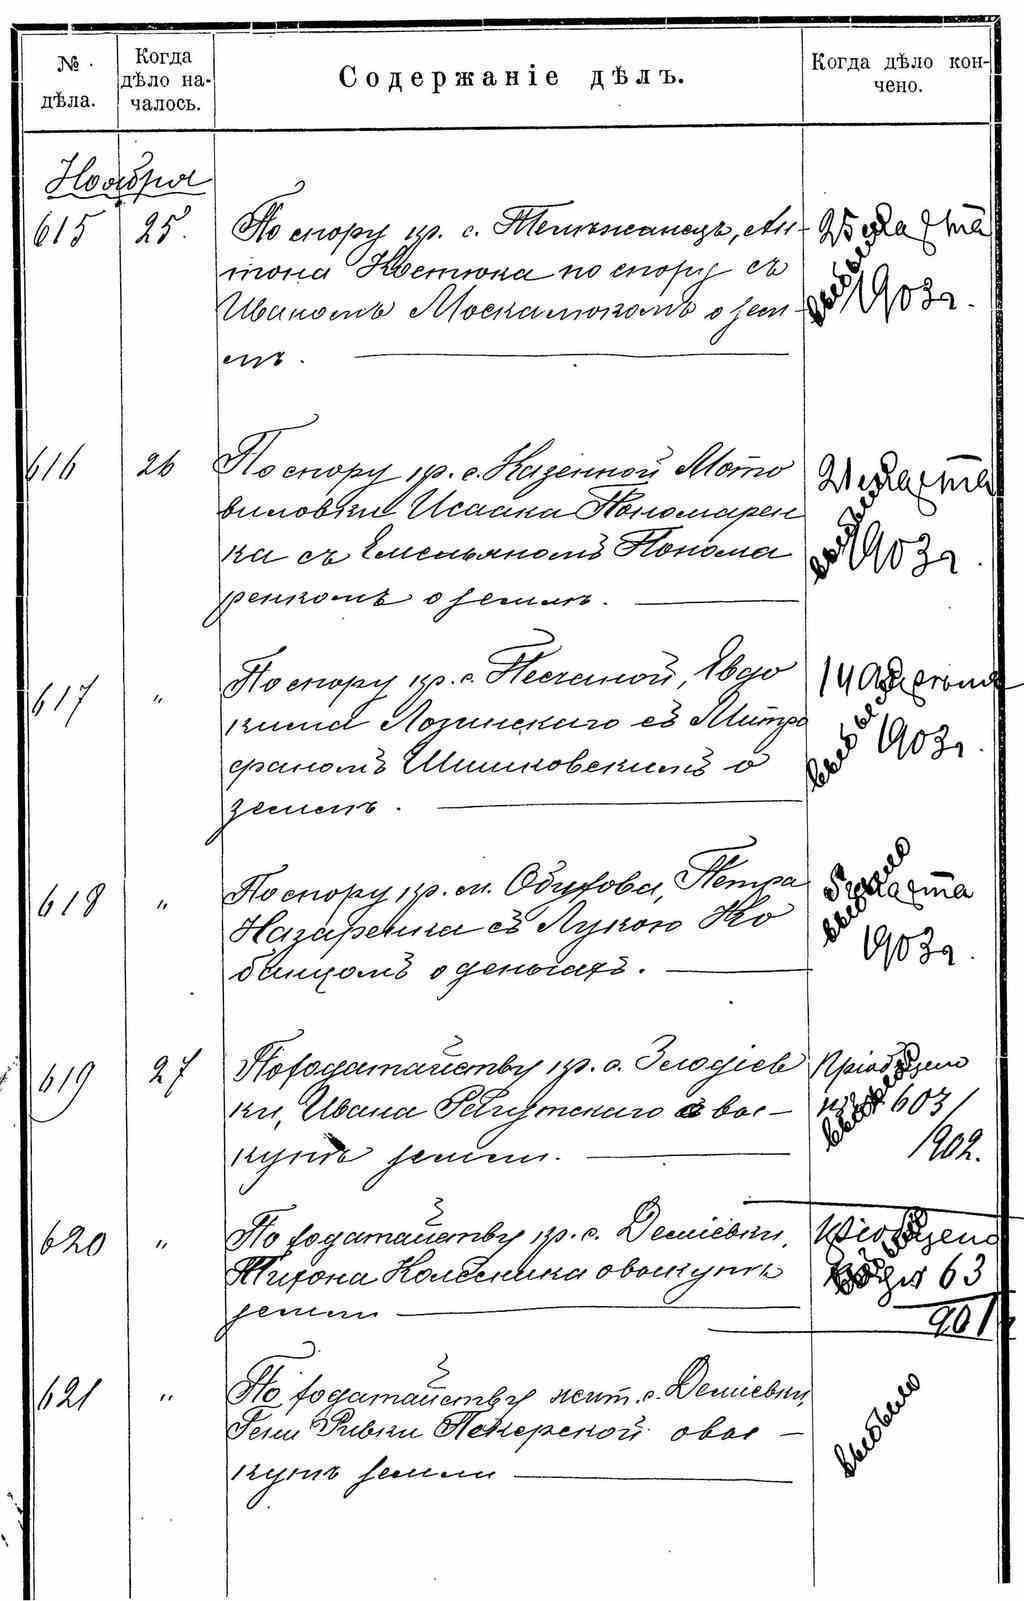 № дѣла.
Когда дѣло на-
чалось.
Содержаніе дѣлъ.
Когда дѣло кон-
чено.
Ноября
615 25. По спору кр. с. Ан-
тона Костюка по спору съ
Иваномъ Москалюкомъ о зем-
лѣ.
25 Марта
1903 г.
выбыло
616 26 По спору кр. с. Казенной Мото
виловки Исаака Пономарен
ка съ Емельяномъ Понома
ренкомъ о землѣ.
21 Марта
1903 г.
выбыло
617 " По спору кр. с. Песчаной, Евдо
кима Лозинскаго съ Митро
фаномъ Шишковскимъ о
землѣ.
14 Апрѣля
1903 г.
выбыло
618 " По спору кр. м. Обухова, Петра
Назаренка съ Лукою Ко
банцомъ о деньгахъ.
Марта
1903 г.
выбыло
619 27 По ходатайству кр. с. Злодіев
ки, Ивана о вы-
купѣ земли.
Пріобщено
603/
902.
выбыло
620 " По ходатайству кр. с. Деміевки,
Тихона Колесника о выкупѣ
земли
Пріобщено
63
901 г
выбыло
621 " По ходатайству жит. с. Деміевки,
Гени Ривки Пекерской о вы-
купѣ земли
выбыло